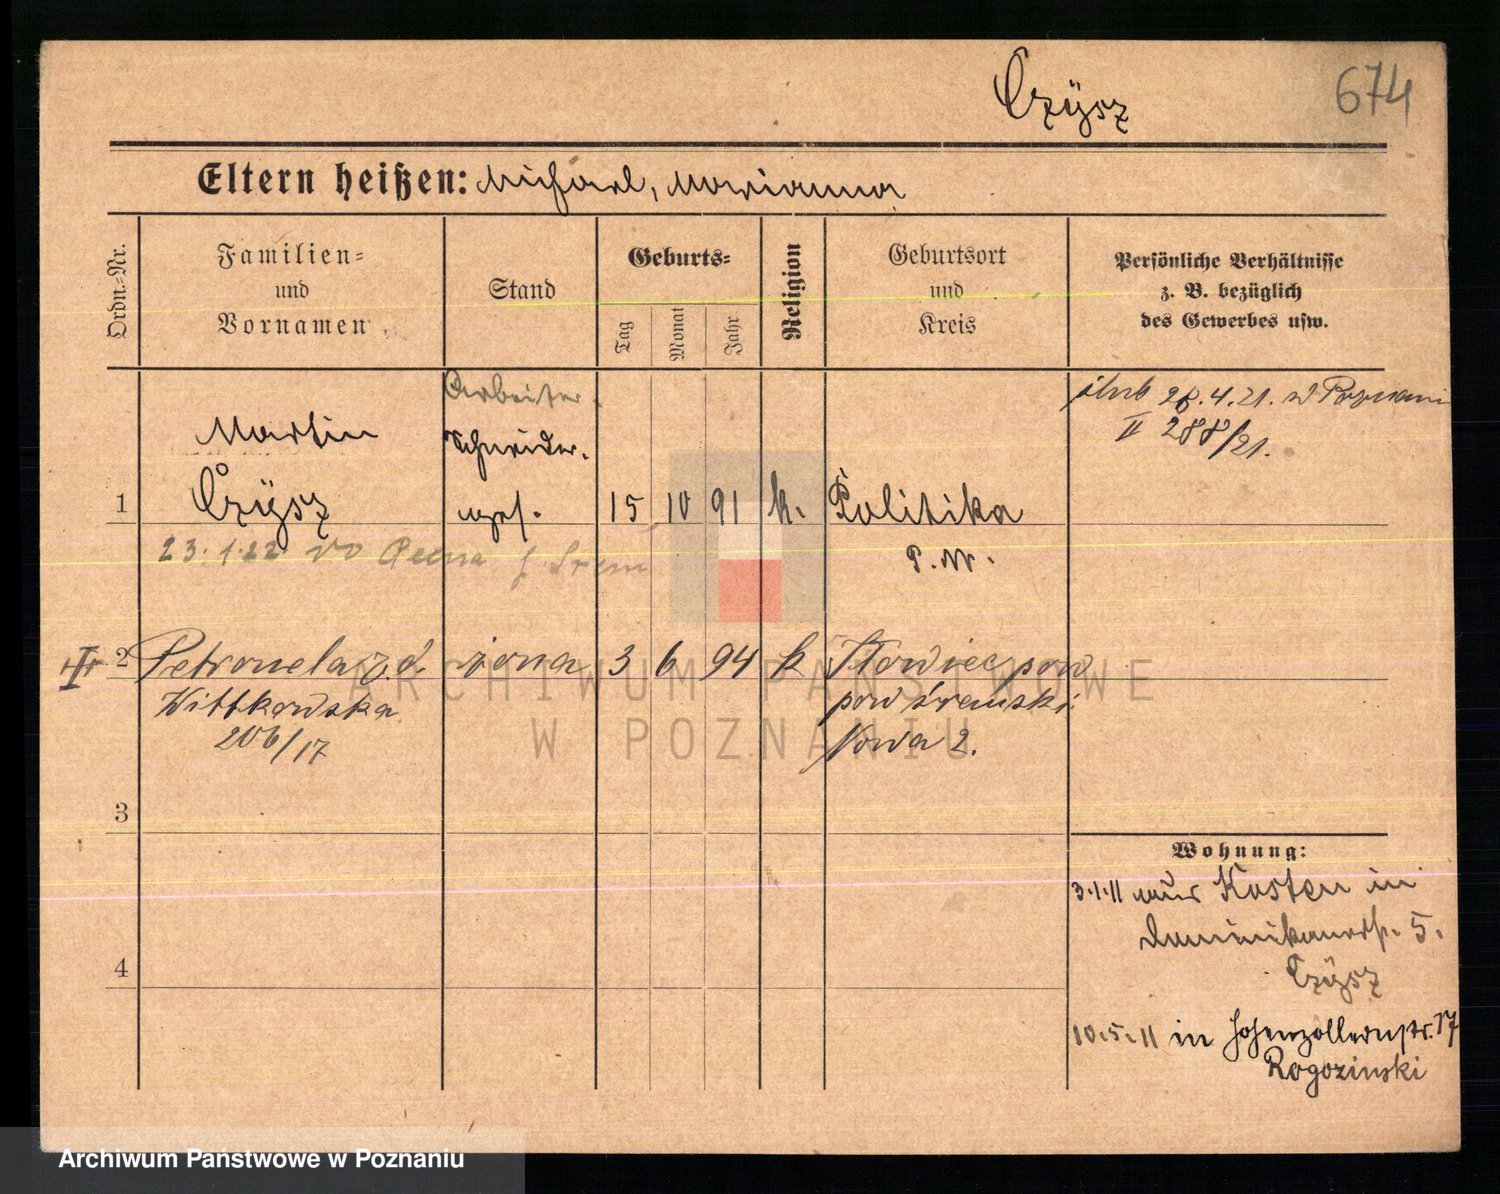 Czÿsz
674
Eltern heißen: Michael, Marianna
Ordn.=Nr.
Familien=
und
Vornamen
Stand
Geburts=
Tag
Monat
Jahr
Religion
Geburtsort
und
Kreis
Persönliche Verhältnisse
z. B. bezüglich
des Gewerbes usw.
Arbeiter.
Martin
Schneider.
1 Czÿsz ges. 15 10 91 k. Politika
P. W.
23.1.22
ślub 28.4.21. w Poznani
II 288/21.
2 Petronela z. d. żona 3 6 94 k
Wittkowska pow śremski
206/17 Nowa 2.
3
4
Wohnung:
3.1.11 aus Kosten in
Dominikanerstr. 5.
Czÿsz
10.5.11 in Hohenzollernstr. 17
Rogozinski
ARCHIWUM PAŃSTWOWE
W POZNANIU
Archiwum Państwowe w Poznaniu